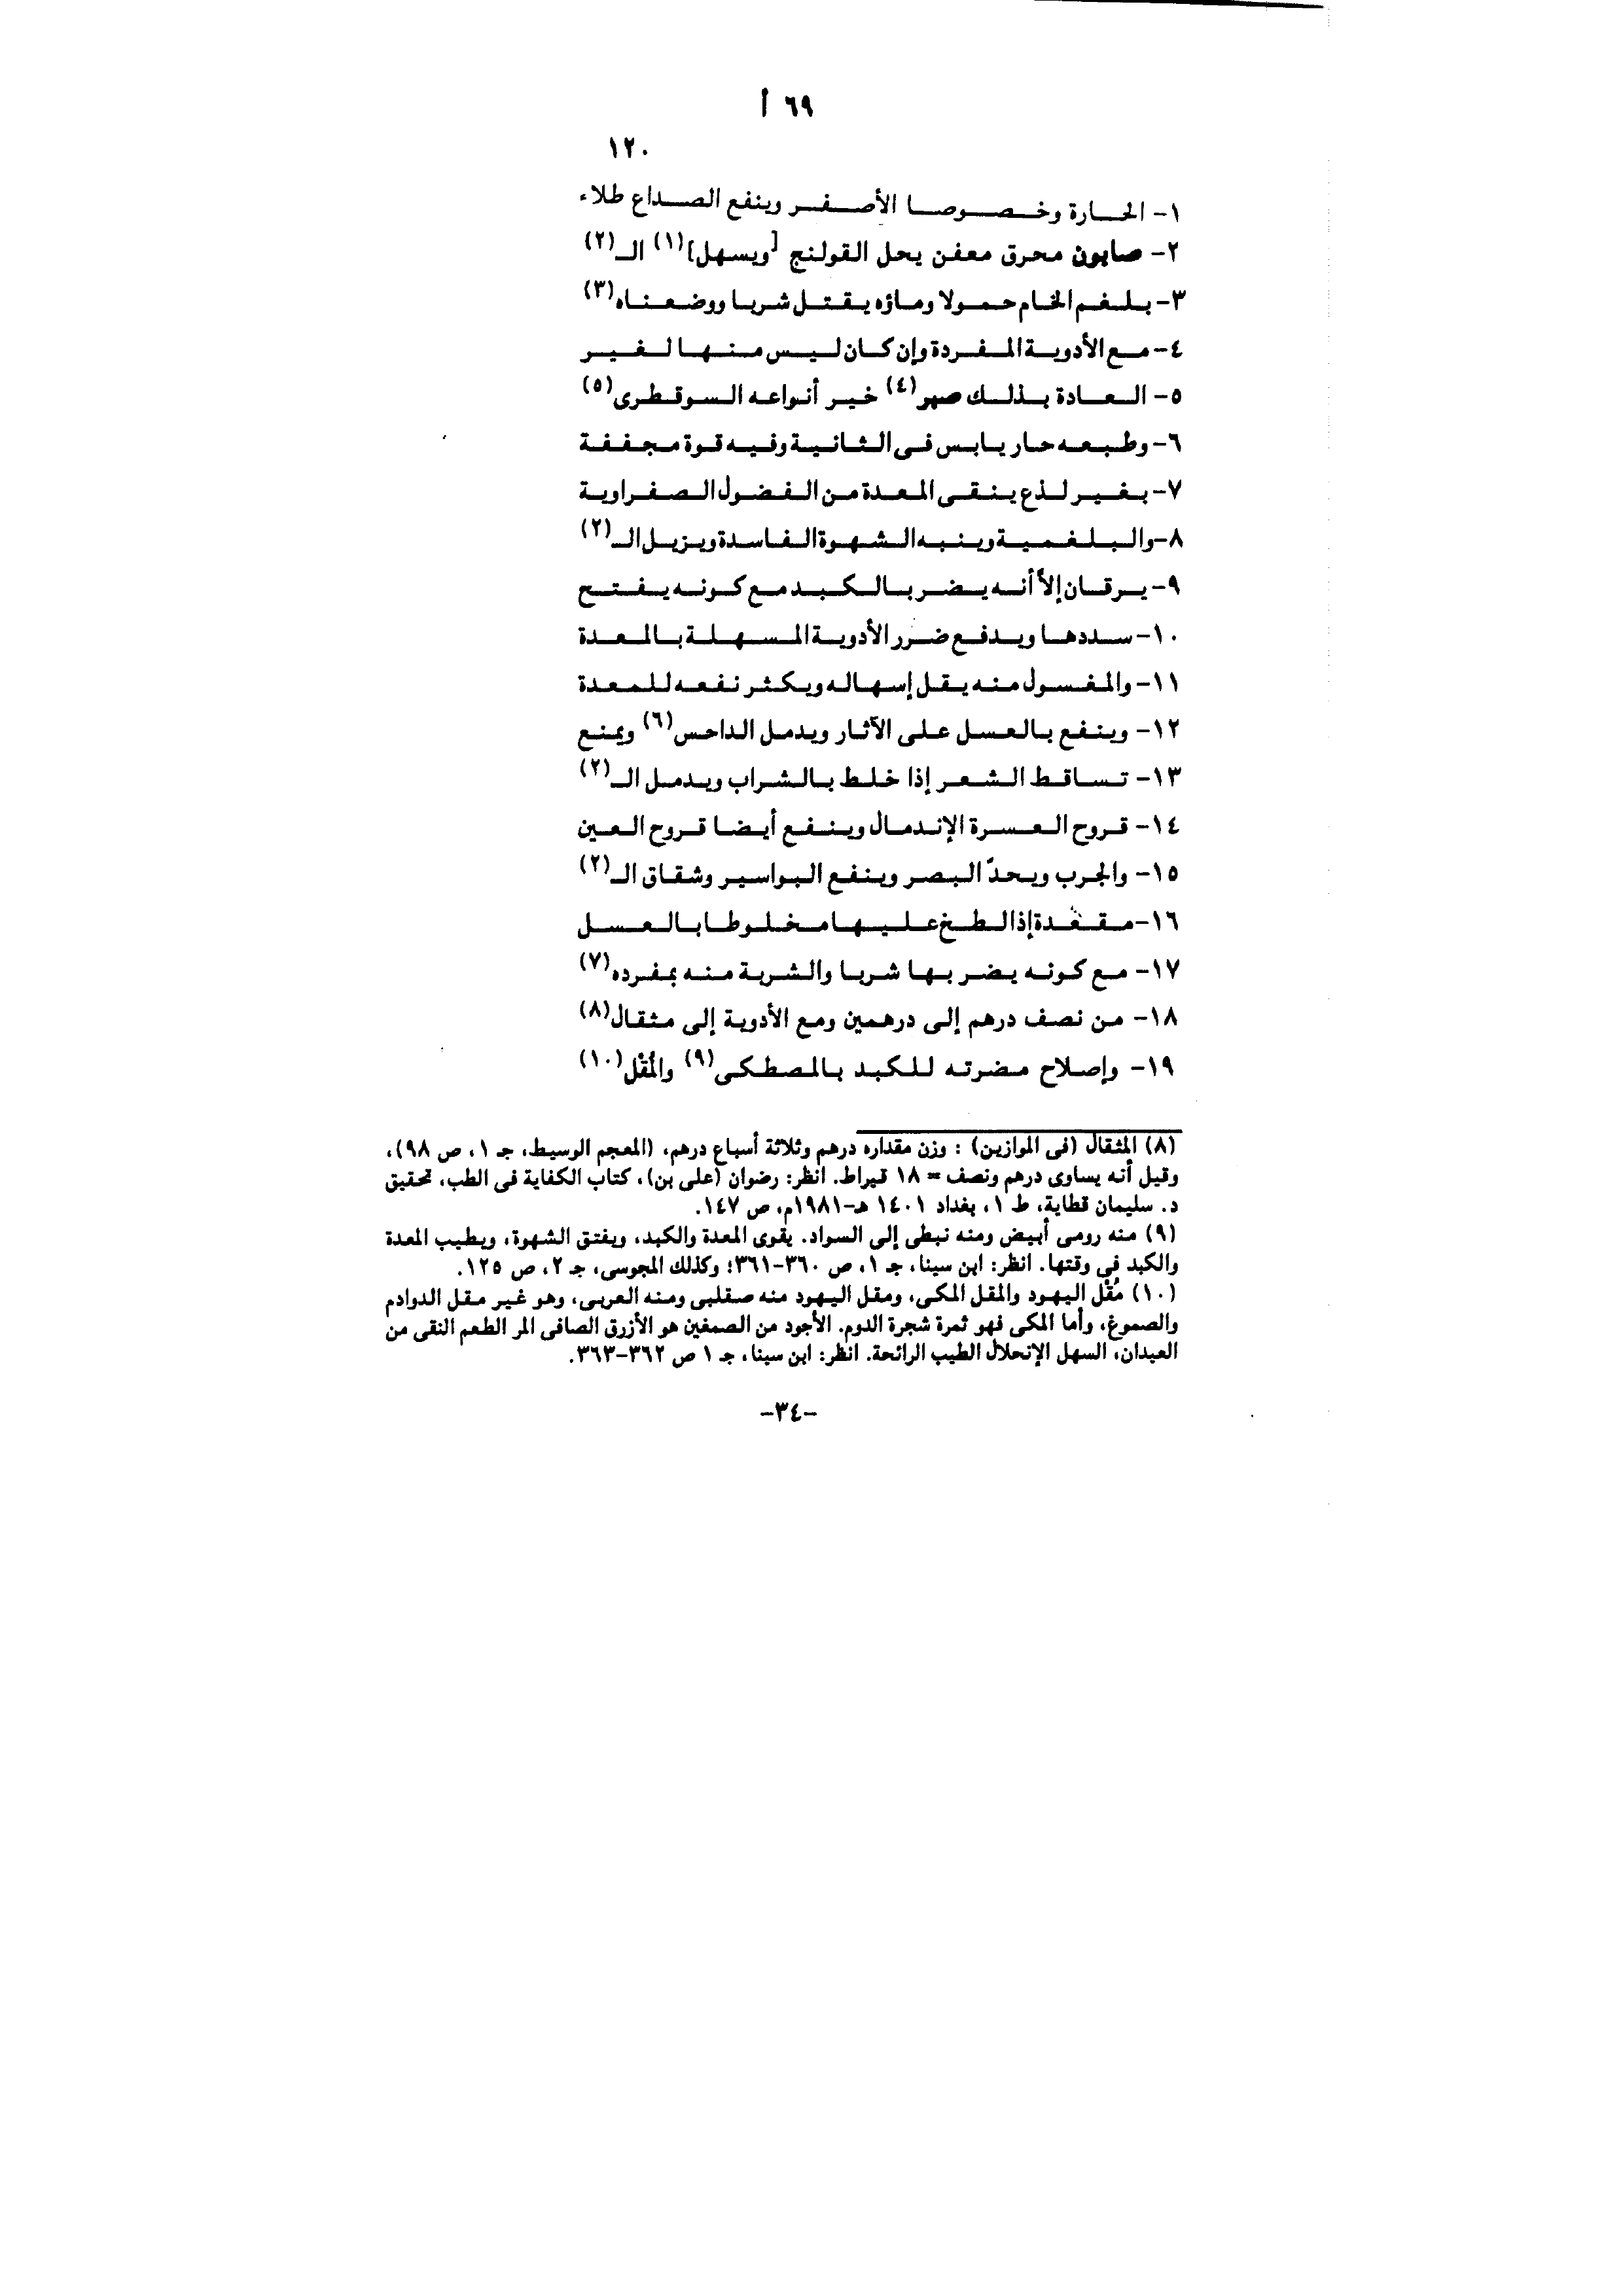 ٦٩ أ
١٢٠
١- الحارة وخصوصا الأصفر وينفع الصداع طلاء
٢- صابون محرق معفن يحل القولنج [ويسهل](١) الـ(٢)
٣- بلغم الخام حمولا وماؤه يقتل شربا ووضعناه(٣)
٤- مع الأدوية المفردة وإن كان ليس منها لغير
٥- العادة بذلك صبر(٤) خير أنواعه السوقطرى(٥)
٦- وطبعه حار يابس فى الثانية وفيه قوة مجففة
٧- بغير لذع ينقى المعدة من الفضول الصفراوية
٨- والبلغمية وينبه الشهوة الفاسدة ويزيل الـ(٢)
٩- يرقان إلاّ أنه يضر بالكبد مع كونه يفتح
١٠- سددها ويدفع ضرر الأدوية المسهلة بالمعدة
١١- والمغسول منه يقل إسهاله ويكثر نفعه للمعدة
١٢- وينفع بالعسل على الآثار ويدمل الداحس(٦) ويمنع
١٣- تساقط الشعر إذا خلط بالشراب ويدمل الـ(٢)
١٤- قروح العسرة الإندمال وينفع أيضا قروح العين
١٥- والجرب ويحدّ البصر وينفع البواسير وشقاق الـ(٢)
١٦- مقعدة إذا لطخ عليها مخلوطا بالعسل
١٧- مع كونه يضر بها شربا والشربة منه بمفرده(٧)
١٨- من نصف درهم إلى درهمين ومع الأدوية إلى مثقال(٨)
١٩- وإصلاح مضرته للكبد بالمصطكى(٩) والمُقْل(١٠)
(٨) المثقال (فى الموازين) : وزن مقداره درهم وثلاثة أسباع درهم، (المعجم الوسيط، جـ ١، ص ٩٨)،
وقيل أنه يساوى درهم ونصف = ١٨ قيراط. انظر: رضوان (على بن)، كتاب الكفاية فى الطب، تحقيق
د. سليمان قطاية، ط ١، بغداد ١٤٠١ هـ-١٩٨١م، ص ١٤٧.
(٩) منه رومى أبيض ومنه نبطى إلى السواد. يقوى المعدة والكبد، ويفتق الشهوة، ويطيب المعدة
والكبد فى وقتها. انظر: ابن سينا، جـ ١، ص ٣٦٠-٣٦١؛ وكذلك المجوسى، جـ ٢، ص ١٢٥.
(١٠) مُقْل اليهود والمقل المكى، ومقل اليهود منه صقلبى ومنه العربى، وهو غير مقل الدوادم
والصموغ، وأما المكى فهو ثمرة شجرة الدوم. الأجود من الصمغين هو الأزرق الصافى المر الطعم النقى من
العيدان، السهل الإنحلال الطيب الرائحة. انظر: ابن سينا، جـ ١ ص ٣٦٢-٣٦٣.
-٣٤-